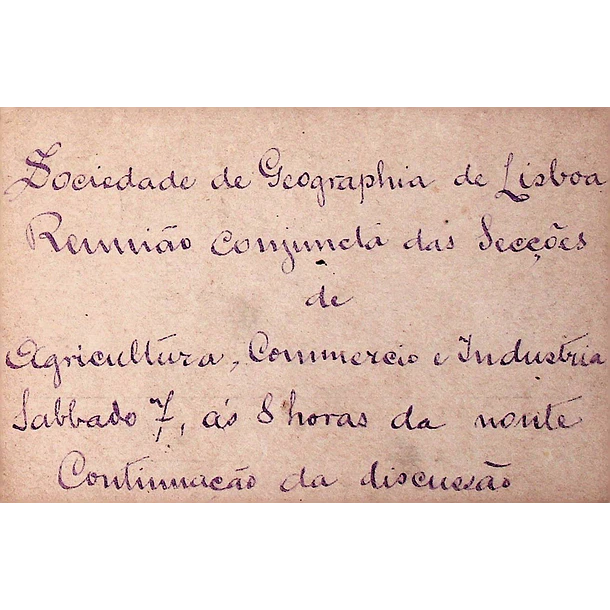 Sociedade de Geographia de Lisboa
Reunião conjuncta das Secções
de
Agricultura, Commercio e Industria
Sabbado 7, ás 8 horas da noute
Continuação da discussão